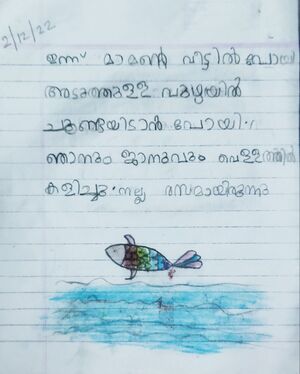 2/12/22
ഇന്ന് മാമൻ്റെ വീട്ടിൽ പോയി
അടുത്തുള്ള പുഴയിൽ
ചൂണ്ടയിടാൻ പോയി.
ഞാനും ജാനുവും വെള്ളത്തിൽ
കളിച്ചു. നല്ല രസമായിരുന്നു